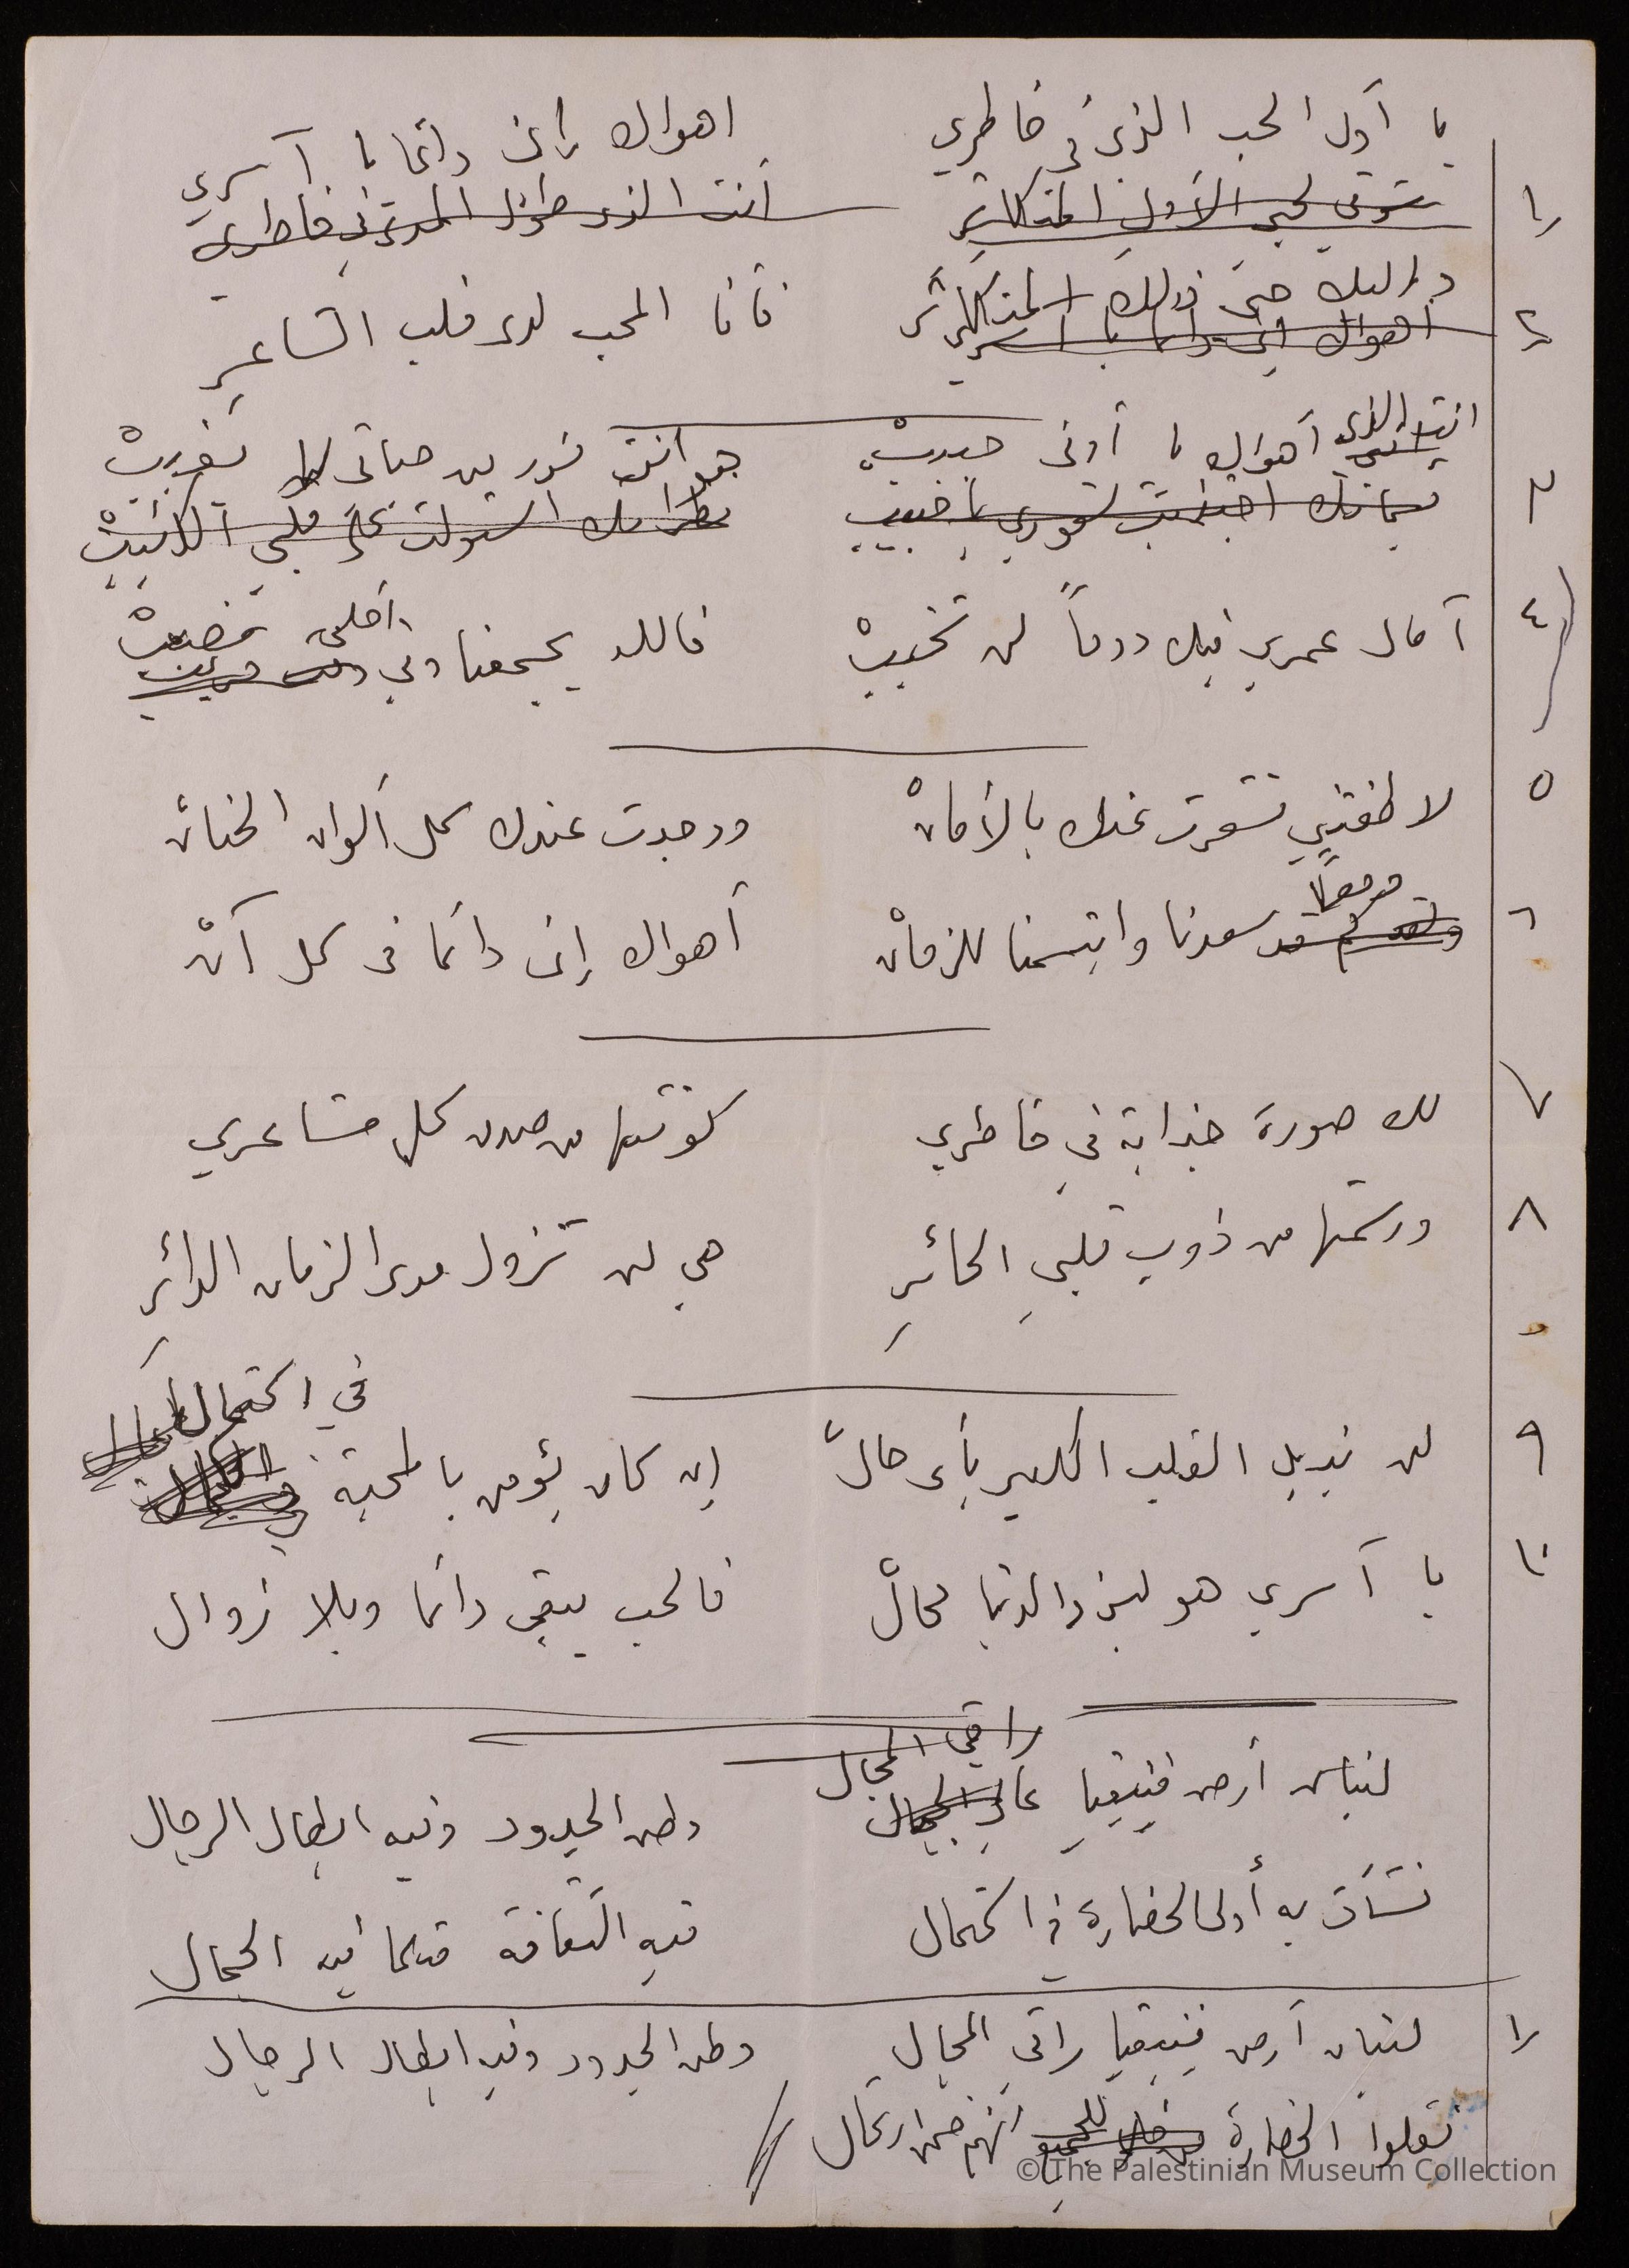 يا أول الحب الذي في خاطري اهواك إني دائما يا آسري
١ شوقي لحبي الأول المتكاثر أنت الذي طول المدى في خاطري
٢ اليك حبي المتكاثر فأنا المحب لدى قلب الشاعرِ
اهواك اني دائما يا آسري
انت الذي أهواك يا أوفى حبيبْ هو انت نور من حياتي لا يغيبْ
٣ اجتذبت شعوري يا حبيب استولت على قلبي الكئيبْ
٤ آمال عمري فيك دوماً لن تخيبْ فالله يجمعنا وفي أحلى نصيبْ
٥ لاطفتني فشعرت عندك بالأمانْ ووجدت عندك كل ألوان الحنانْ
٦ سعدنا وابتسمنا للزمانْ أهواك إني دائما في كل آنْ
٧ لك صورة جذابة في خاطري كونتها من صدى كل مشاعري
٨ ورسمتها من ذوب قلبي الحائرِ هي لن تزول مدى الزمان الدائرِ
في اكتمال
٩ لن يذبل القلب الكبير بأي حالْ إن كان يؤمن بالمحبة
١٠ يا آسري هو لغز دالدنيا محالْ فالحب يبقى دائما وبلا زوال
راقي المجال
لبنان أرض فينيقيا عالي الجبال وطن الجدود وفيه ابطال الرجال
نشأت به أولى الحضارة في اكتمال فيه الثقافة مثلما فيه الجمال
١ لبنان أرض فينيقيا راقي المجال وطن الجدود وفيه ابطال الرجال
نقلوا الحضارة للجميع ارتحال
© The Palestinian Museum Collection